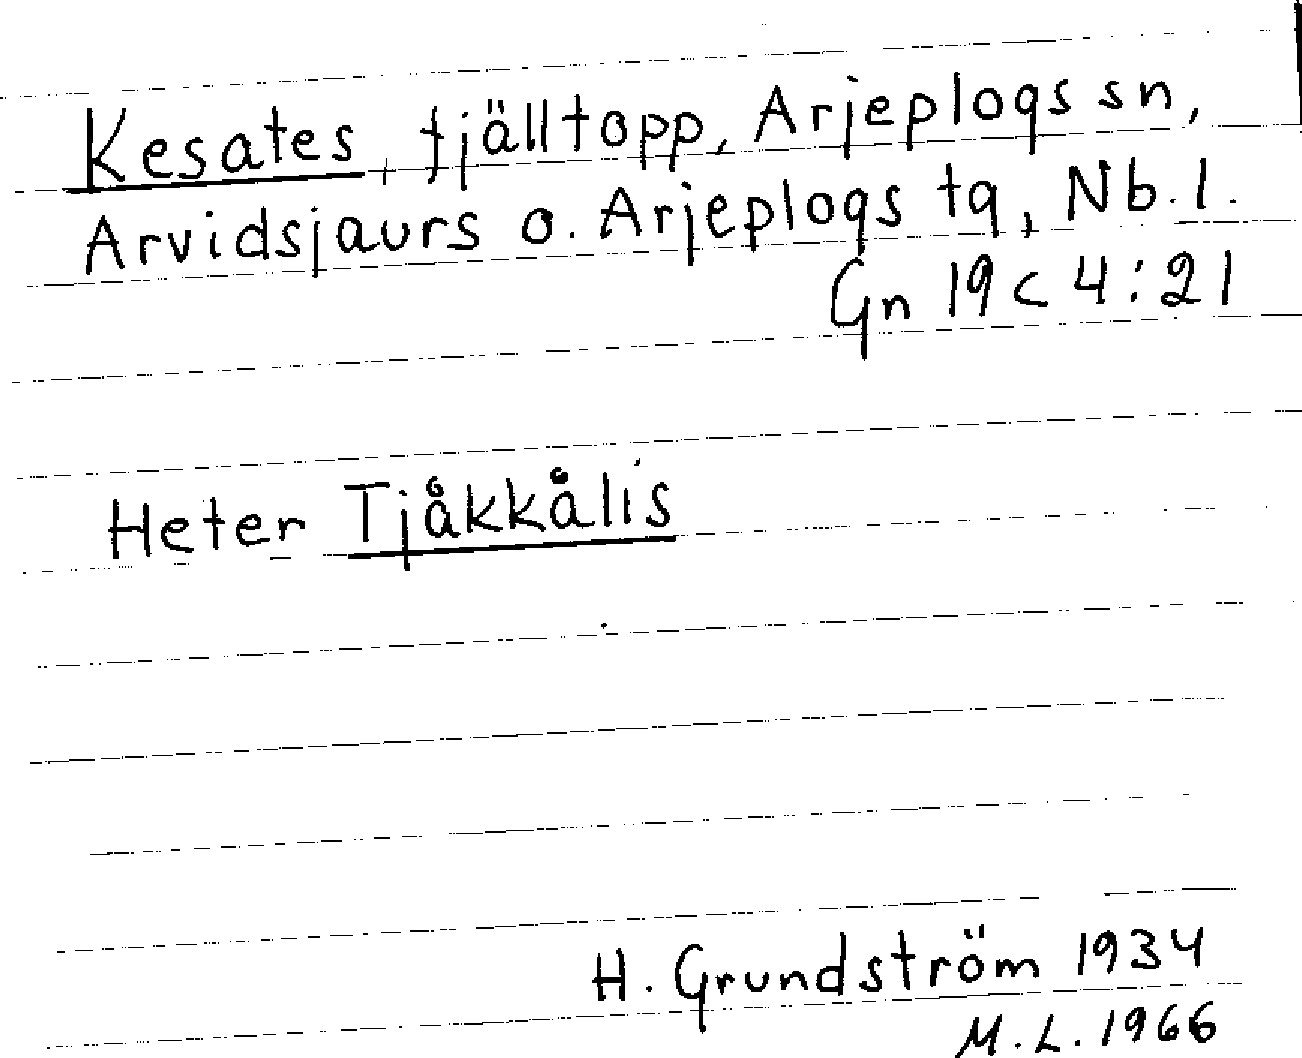 Kesates, fjälltopp, Arjeplogs sn,
Arvidsjaurs o. Arjeplogs tg, Nb.l.
Gn 19c 4:21
Heter Tjåkkålis
H. Grundström 1934
M.L. 1966